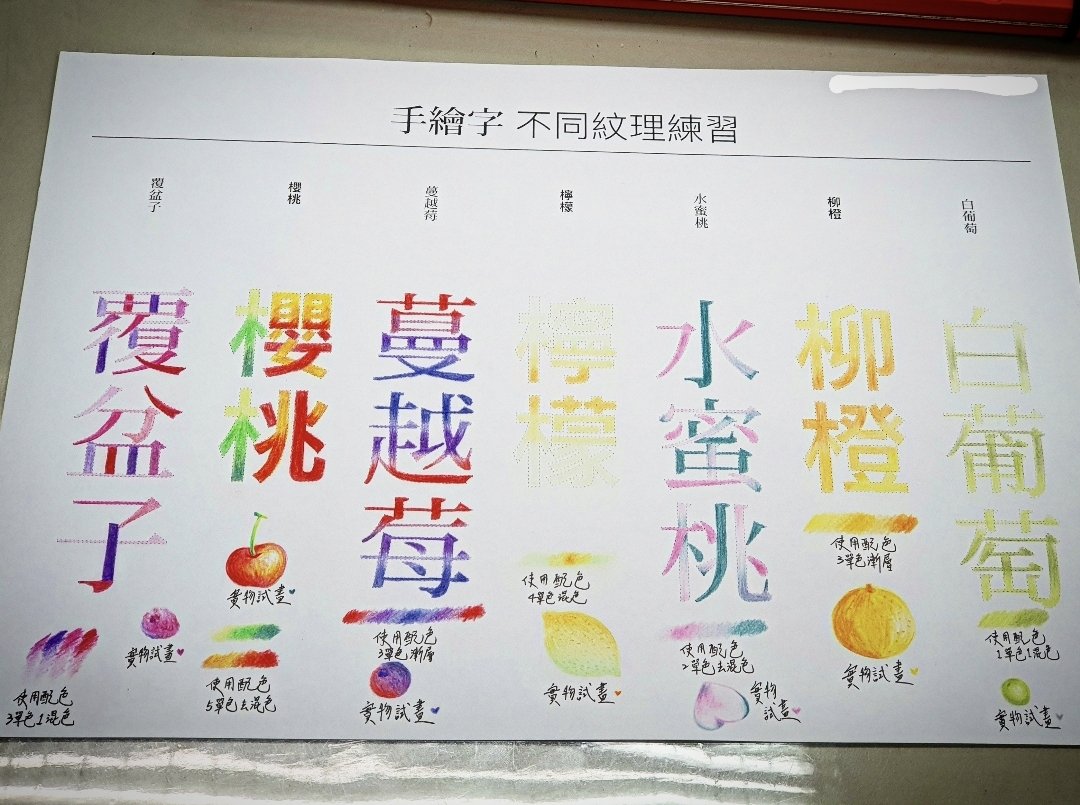 手繪字 不同紋理練習
覆盆子
櫻桃
蔓越莓
檸檬
水蜜桃
柳橙
白葡萄
覆盆子
櫻桃
蔓越莓
檸檬
水蜜桃
柳橙
白葡萄
實物試畫
使用配色
3單色1混色
實物試畫
使用配色
5單色去混色
使用配色
3單色漸層
實物試畫
使用配色
4單色混色
實物試畫
使用配色
2單色去混色
實物
試畫
使用配色
3單色漸層
實物試畫
使用配色
1單色1混色
實物試畫